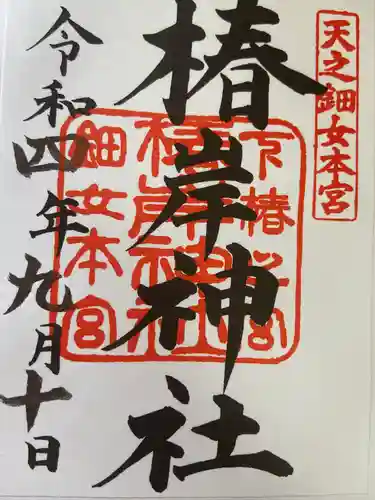 天之鈿女本宮
椿岸神社
令和四年九月十日
椿岸神社
鈿女本宮